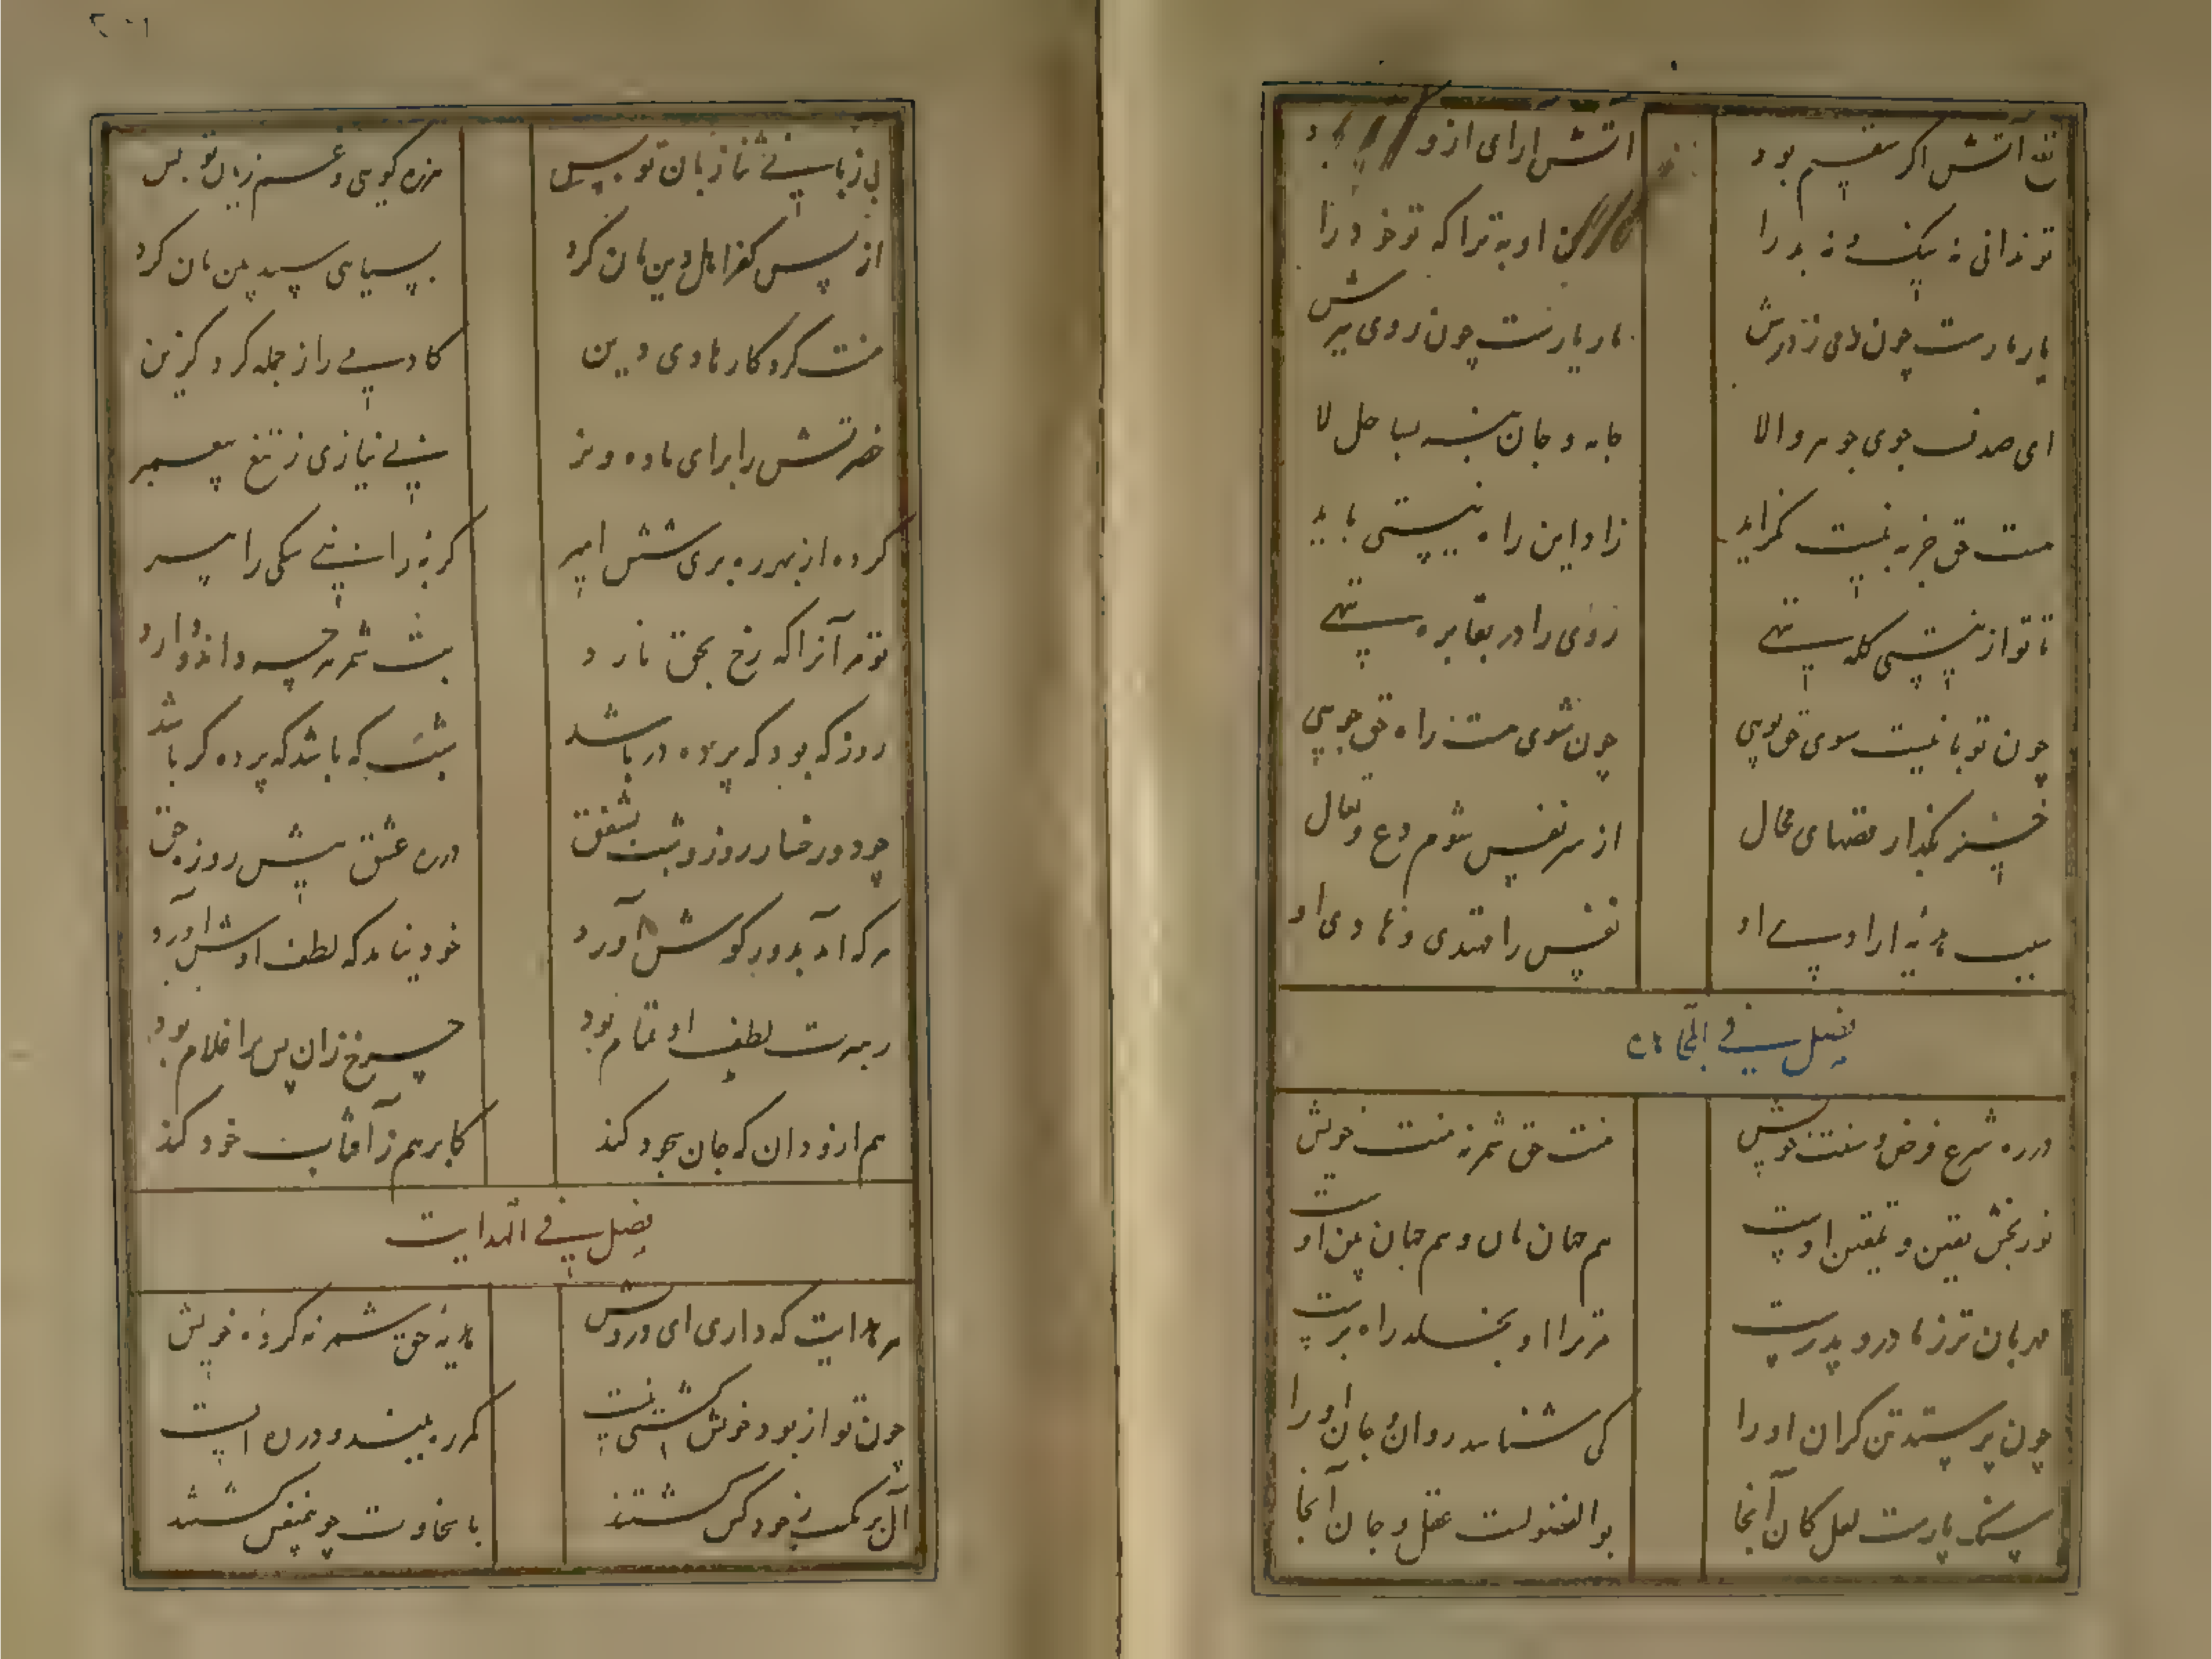 تف آتش اگر مقیم بود آتش آرای ازو
تو ندانی نه نیک و نه بد را او به ترا که تو خود را
یار مارست چون نهی زدرش مار یارست چون روی ببرش
ای صدف جوی جوهر والا جامه و جان بنه بساحل لا
هست حق جز به نیست نگراید زاد این راه نیستی باید
تا تو از نیستی کله ننهی روی را در بقا بره ننهی
چون تو با نیست سوی حق پویی چون شوی هست راه حق جویی
خیز بگذار قصهای محال از سر نفس شوم دع و تعال
بیند هدیه را ولی او نفس را مهتدی و هادی او
فصل فی المجاهده
در ره شرع فرض و سنت خویش منت حق شمر نه منت خویش
نوربخش یقین و تلقین اوست هم جهان بان و هم جهان بین اوست
مهربان تر ز مادر و پدرست مر ترا او بخلد راه برست
چون پرستد تن گران او را کی شناسد روان و جان او را
سنگ پارست لعل کان آنجا بوالفضولست عقل و جان آنجا
۲۰۱
بی زبانی ثنا زبان تو بس هرزه گویی و غم زیان تو بس
از پس کفر اهل دین مان کرد بسیاهی سپید بین مان کرد
منت کردکار هادی دین کادمی را ز جمله کرد گزین
حضرتش را برای ماده و نر بی نیازی ز تیغ پیغمبر
کرده از بهر رهبری شش امیر گربه را نبی سگی را پیر
تو مر آنرا که رخ بحق نارد بت شمر هرچه داند و دارد
روز که بود که پرده در باشد شب که باشد که پرده گر باشد
چه دو رخسار روز و شب بشفق در ره عشق پیش روزه حق
هرکه آمد بدو و گوش آورد خود نیامد که لطف اوش آورد
رهبرت لطف او تمام بود چرخ زان پس ترا غلام بود
هم ازو دان که جان سجود کند کابر هم ز آفتاب خود کند
فصل فی الهدایت
هر هدایت که داری ای درویش هدیه حق شمر نه کرده خویش
چون تو از بود خویش گشتی نیست کمر ره ببند و در ره ایست
آل برمک ز خود کس گشتند با سخاوت چو هم نفس گشتند